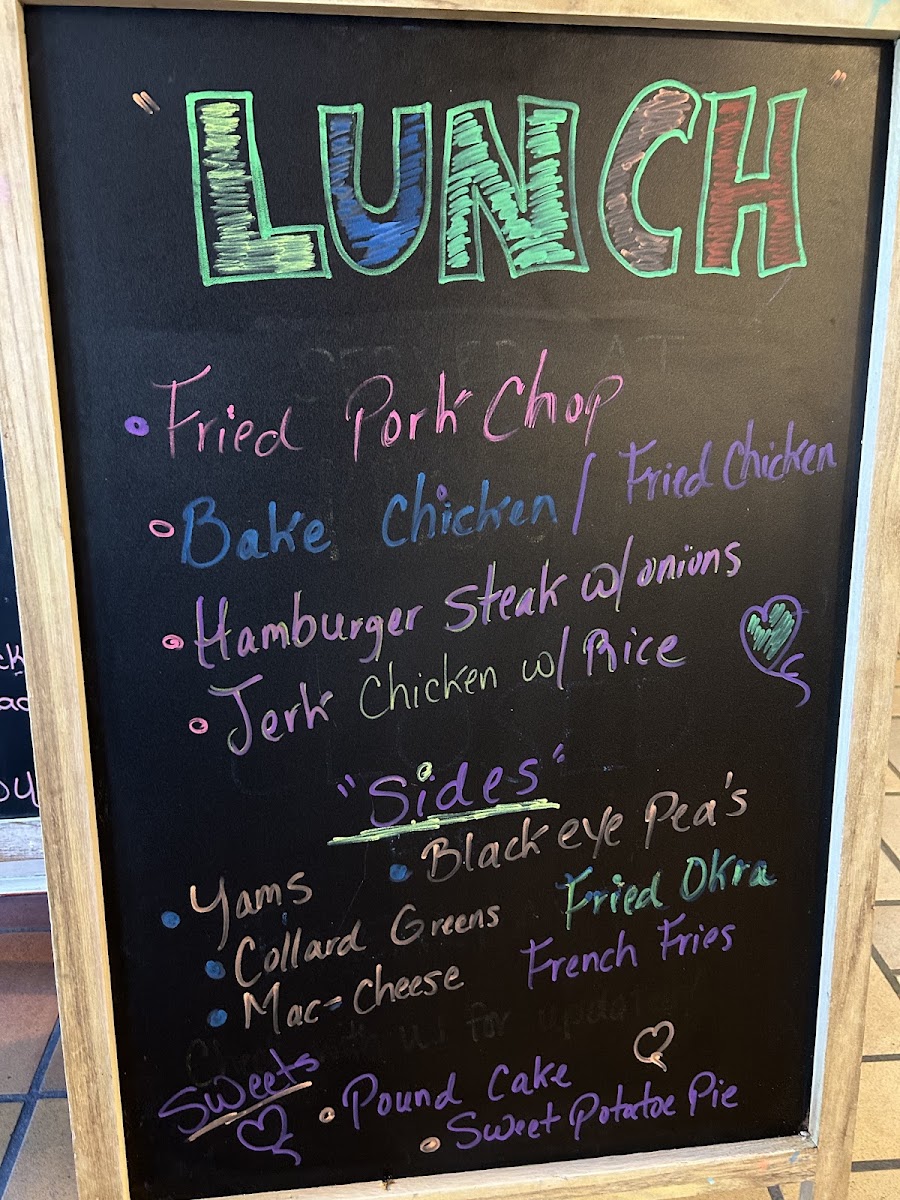 "LUNCH"
• Fried Pork Chop
• Bake Chicken / Fried Chicken
• Hamburger Steak w/ onions
• Jerk Chicken w/ Rice
"Sides"
• Yams • Blackeye Pea's
• Collard Greens Fried Okra
• Mac-Cheese French Fries
Sweets • Pound Cake
• Sweet Potatoe Pie